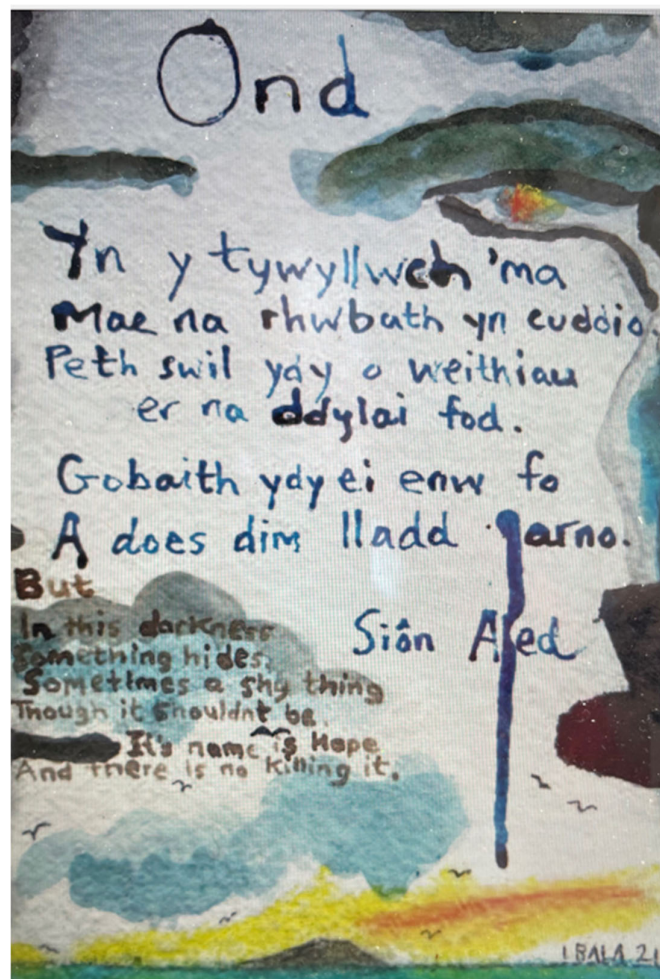 Ond
Yn y tywyllwch 'ma
Mae na rhwbath yn cuddio.
Peth swil ydy o weithiau
er na ddylai fod.
Gobaith ydy ei enw fo
A does dim lladd arno.
Siôn Aled
But
In this darkness
Something hides.
Sometimes a shy thing
Though it shouldnt be.
It's name is Hope
And there is no killing it.
BALA 21